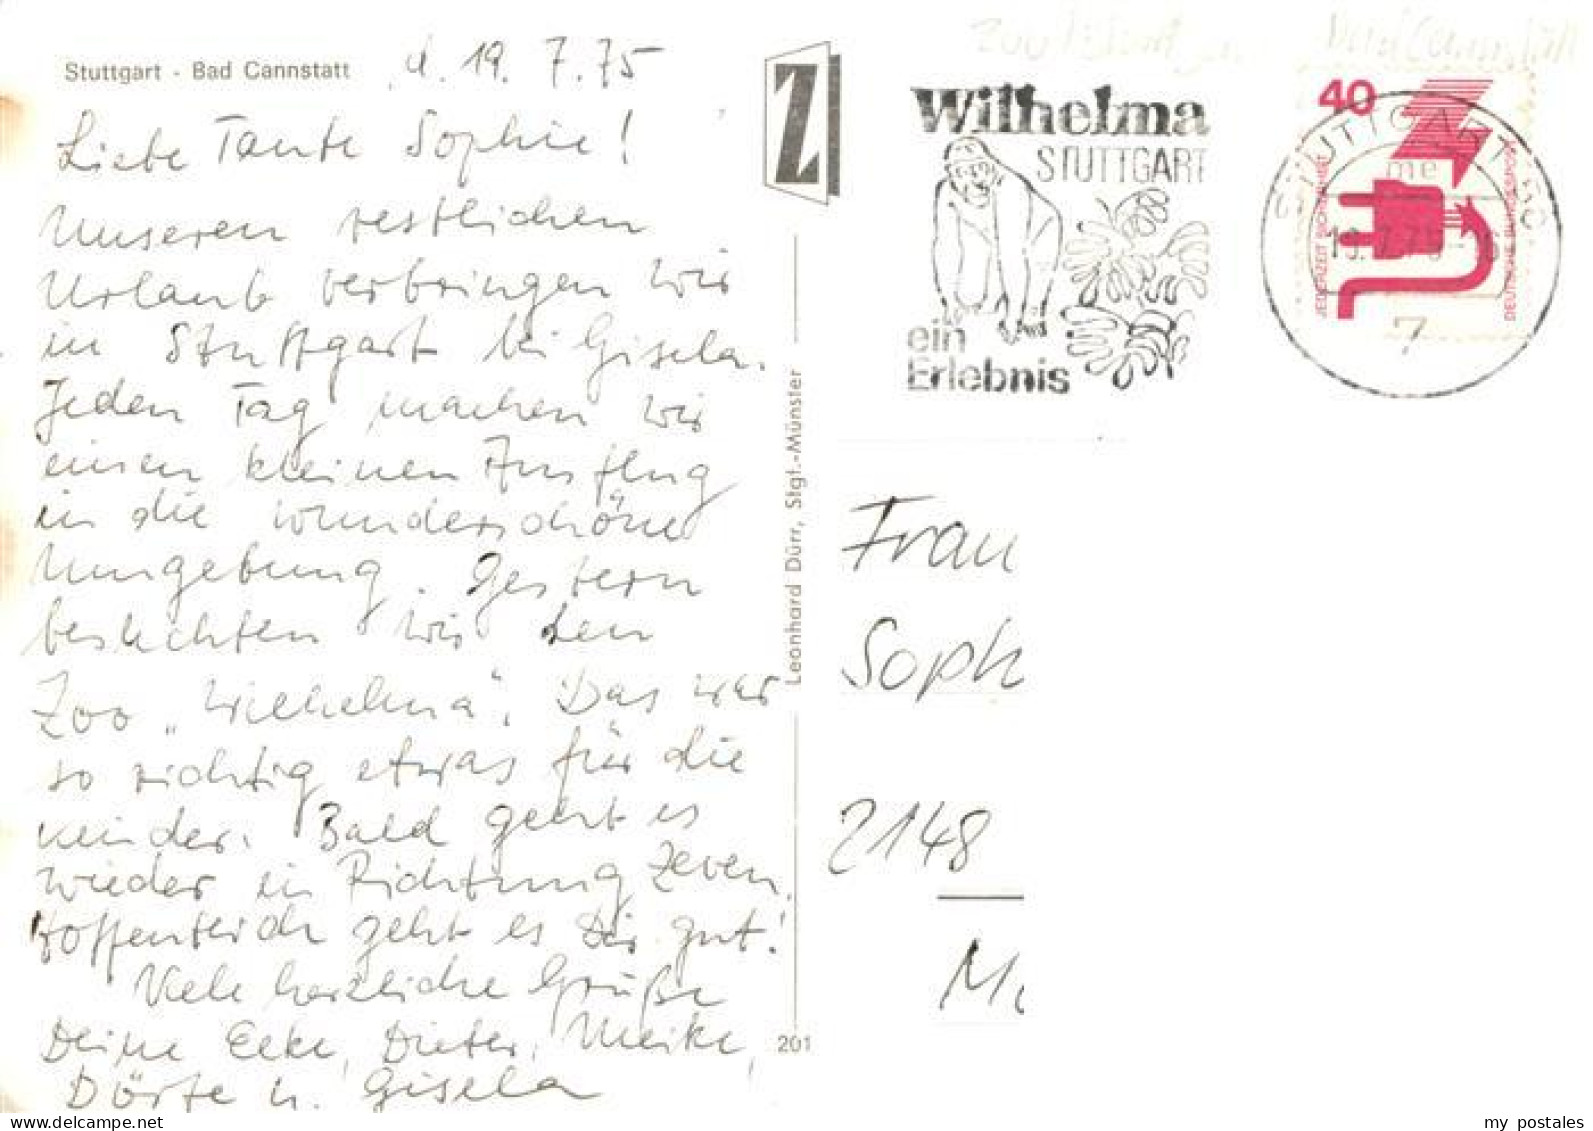 Stuttgart - Bad Cannstatt
d. 19. 7. 75
Liebe Tante Sophie!
Unseren restlichen
Urlaub verbringen wir
in Stuttgart bei Gisela.
Jeden Tag machen wir
einen kleinen Ausflug
in die wunderschöne
Umgebung. Gestern
besuchten wir den
Zoo „Wilhelma". Das war
so richtig etwas für die
Kinder. Bald geht es
wieder in Richtung Zeven.
Hoffentlich geht es Dir gut!
Viele herzliche Grüße
Deine Elke, Dieter, Meike,
Dörte u. Gisela
Z
Leonhard Dürr, Stgt.-Münster
201
Wilhelma
STUTTGART
ein
Erlebnis
STUTTGART
7
40
JEDERZEIT SICHERHEIT
DEUTSCHE BUNDESPOST
Frau
Soph
2148
my postales